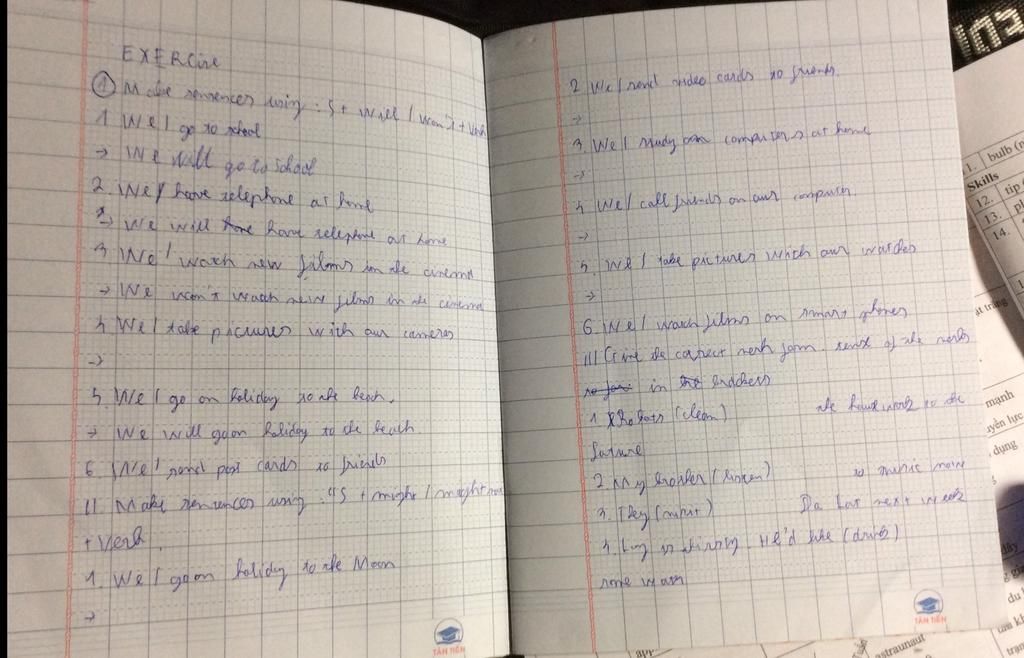 EXERCise
① Make sentences using : S + will / won't + Verb
1 We / go to school
→ We will go to school
2. We / have telephone at home
→ We will have telephone at home
3 We / watch new films in the cinema
→ We won't watch new films in the cinema
4 We / take pictures with our cameras
→
5. We / go on holiday to the beach.
→ We will go on holiday to the beach
6. We / send post cards to friends
II. Make sentences using : "S + might / might not
+ Verb.
1. We / go on holiday to the Moon
→
2 We / send video cards to friends.
→
3. We / study on computers at home
→
4 We / call friends on our computer.
→
5. We / take pictures which our watches
→
6. We / watch films on smart phones
III Give the correct verb form. tense of the verbs
in brackets
1 Robots (clean) the housework in the
future
2. My brother (listen) to music now
3. They (visit) Da Lat next week
4. is thirsty. He'd like (drink)
some water
TÂN TIẾN
TÂN TIẾN
1. bulb (n
Skills
12. tip
13.
14.
mạnh
dụng
du
astraunaut